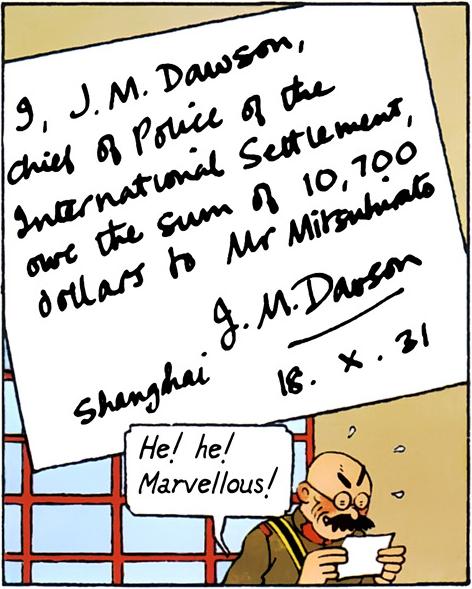 I, J. M. Dawson,
chief of Police of the
International Settlement,
owe the sum of 10,700
dollars to Mr Mitsuhirato
J. M. Dawson
Shanghai
18. X. 31
He! he!
Marvellous!